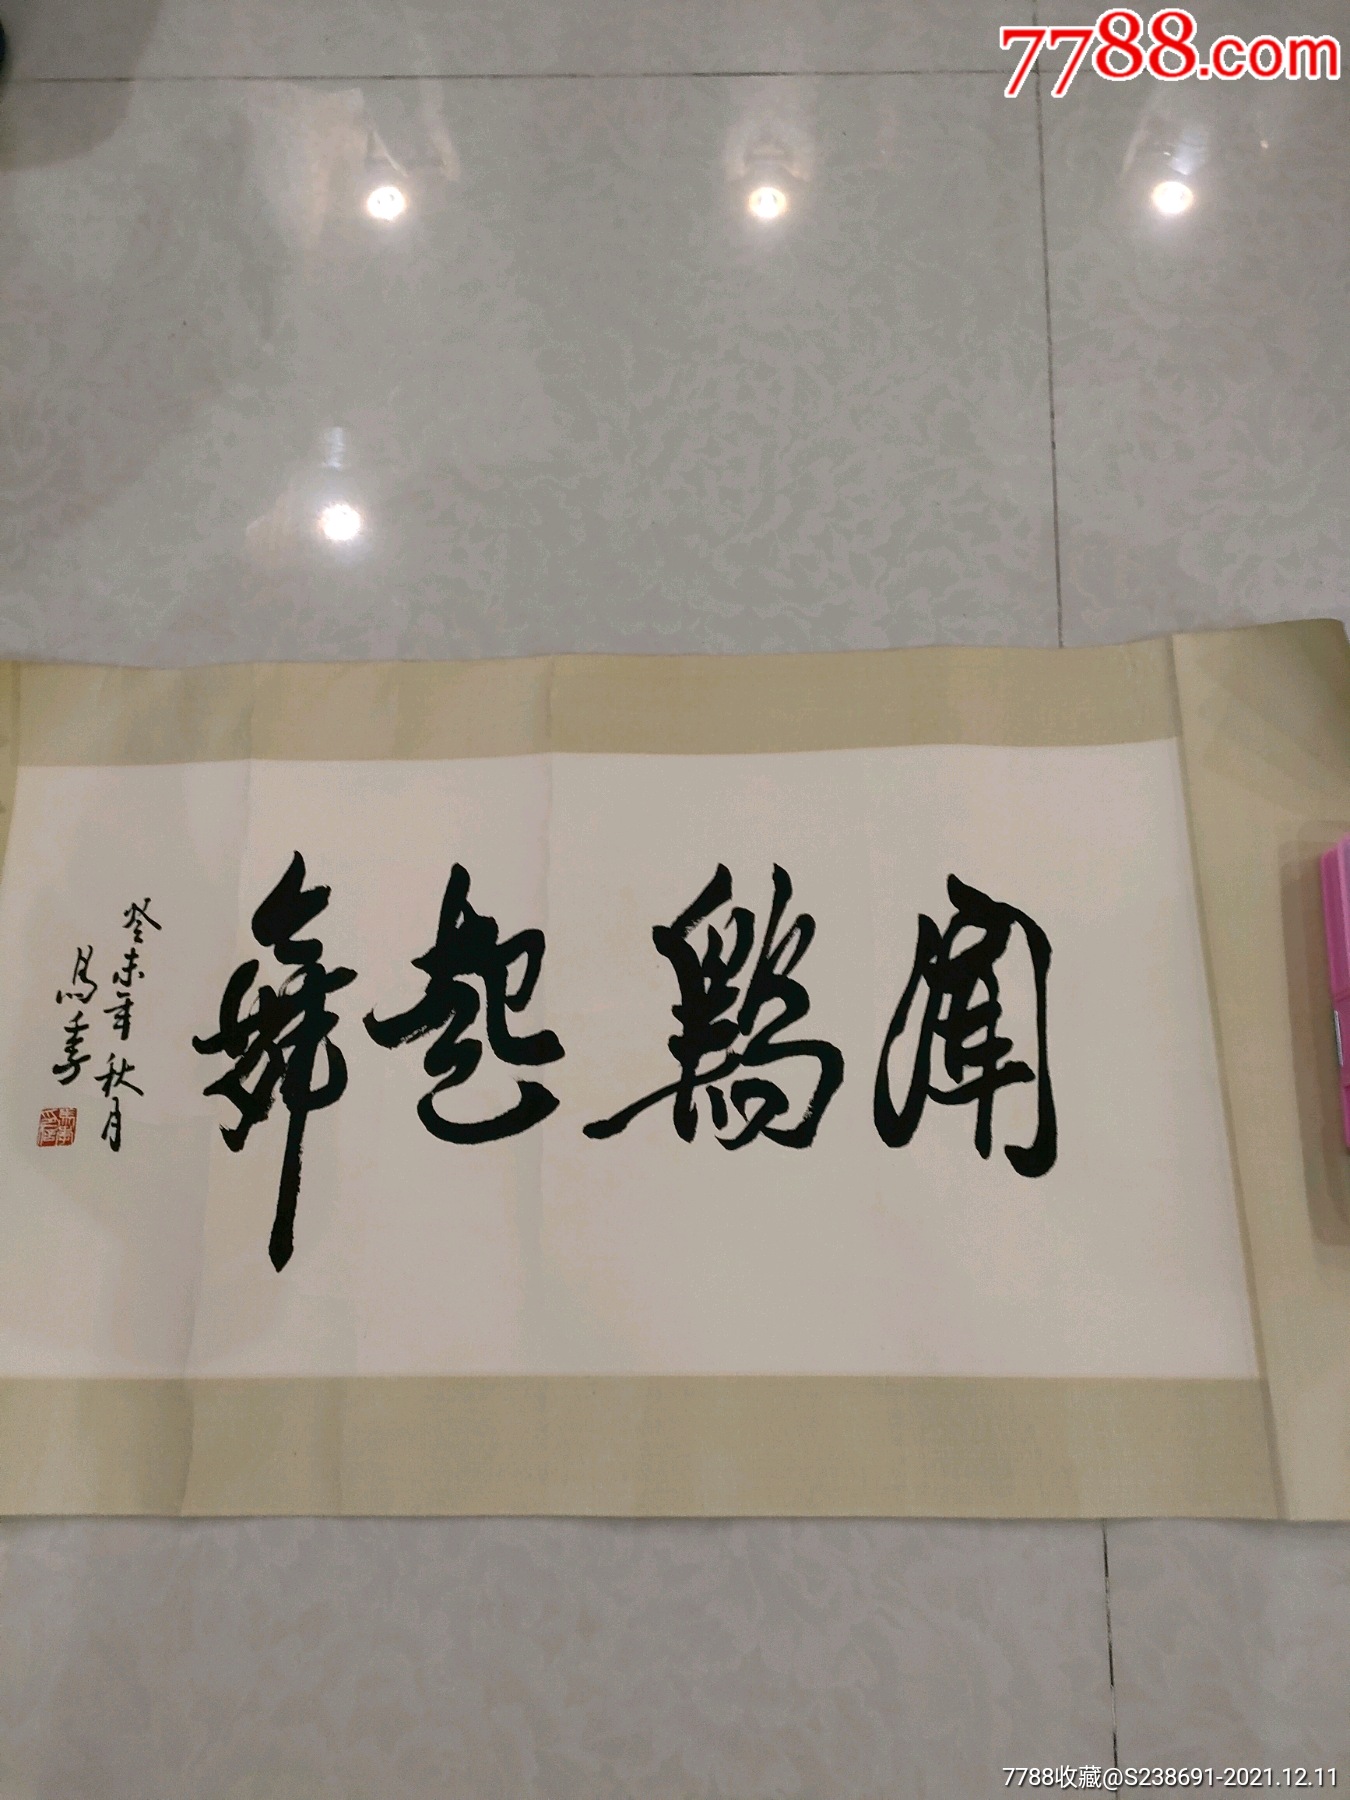 7788.com
聞鷄起舞
癸未年秋月
馬季
7788收藏@S238691-2021.12.11